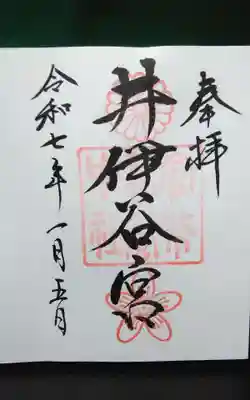 奉拝
井伊谷宮
令和七年一月五日